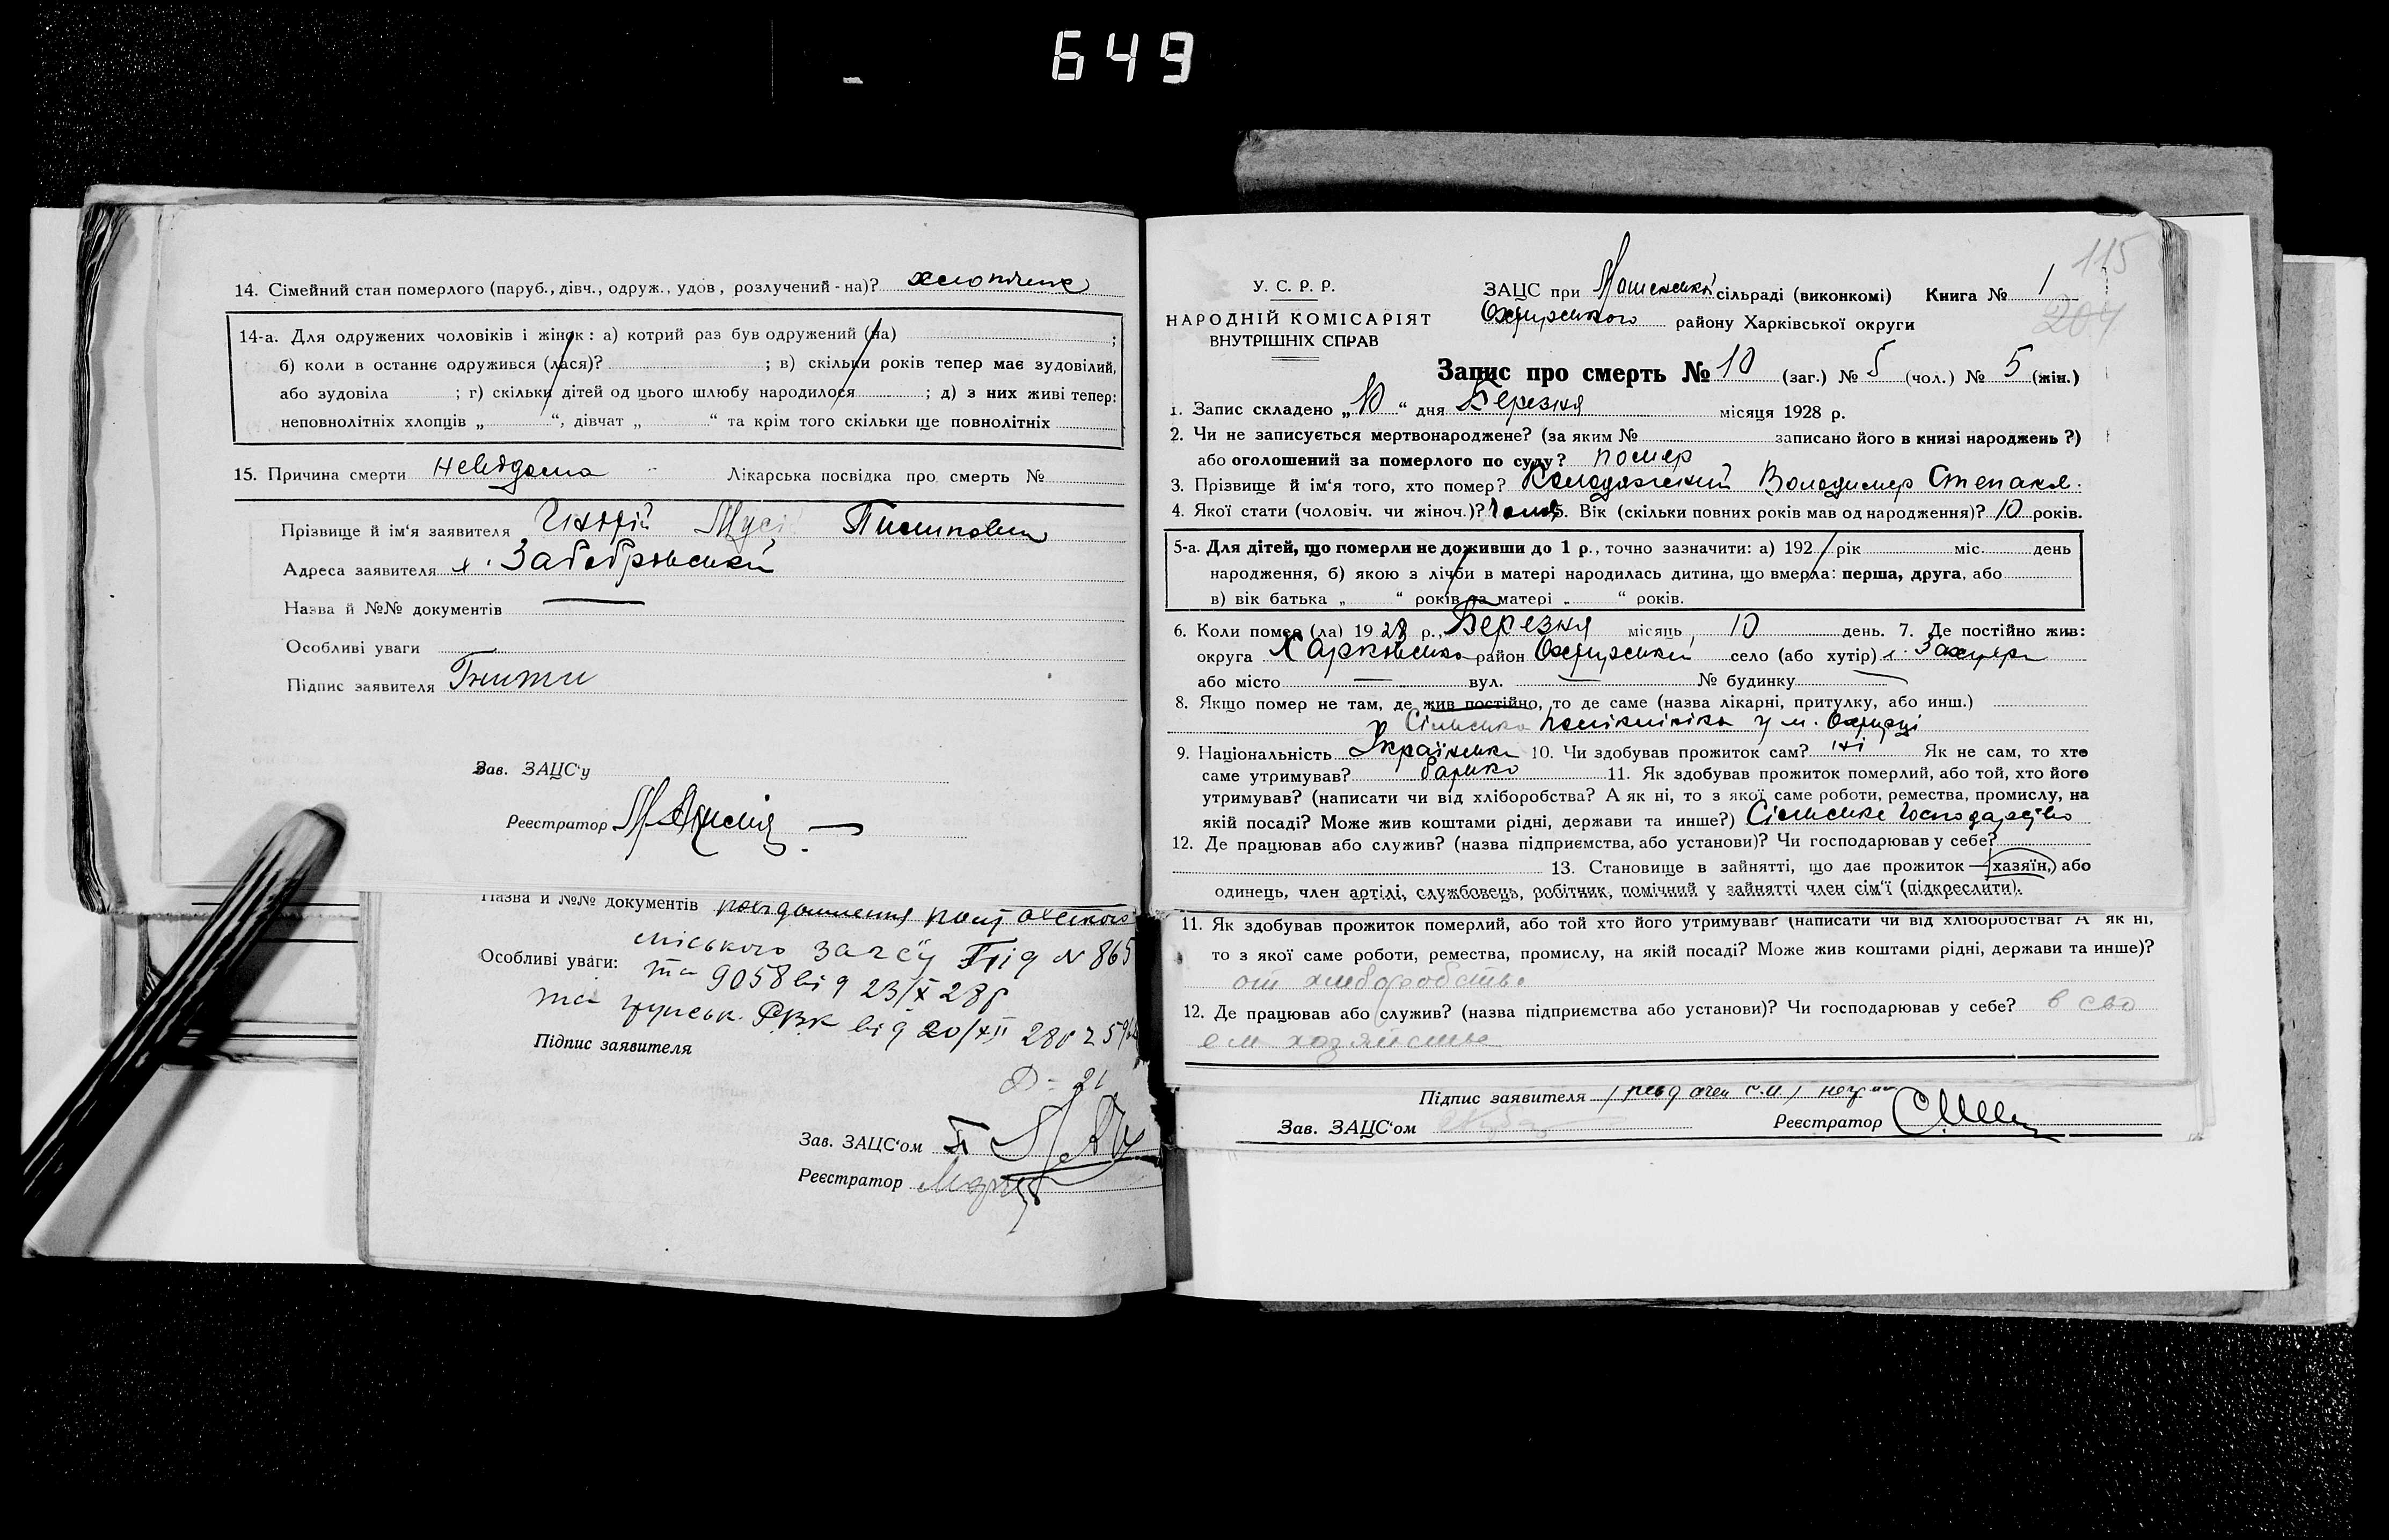 649
14. Сімейний стан померлого (паруб., дівч., одруж., удов, розлучений-на)? хлопчик
14-а. Для одружених чоловіків і жінок: а) котрий раз був одружений (на) ;
б) коли в останнє одружився (лася)? ; в) скільки років тепер має зудовілий,
або зудовіла ; г) скільки дітей од цього шлюбу народилося ; д) з них живі тепер:
неповнолітніх хлопців „ “, дівчат „ “ та крім того скільки ще повнолітніх
15. Причина смерти невідома Лікарська посвідка про смерть №
Прізвище й ім'я заявителя Гнатій Мусі Пилипович
Адреса заявителя х.
Назва й №№ документів —
Особливі уваги
Підпис заявителя
Зав. ЗАЦС'у
Реєстратор
Назва й №№ документів повідомлення
міського загсу Під № 865
Особливі уваги:
та 9058 від 23/X 28р
та РВК від 20/XII 28р
Підпис заявителя
Зав. ЗАЦС'ом
Реєстратор
115
204
У. С. Р. Р.
НАРОДНІЙ КОМІСАРІЯТ
ВНУТРІШНІХ СПРАВ
ЗАЦС при сільраді (виконкомі) Книга № 1
Охтирського району Харківської округи
Запис про смерть № 10 (заг.) № 5 (чол.) № 5 (жін.)
1. Запис складено „10“ дня Березня місяця 1928 р.
2. Чи не записується мертвонароджене? (за яким № записано його в книзі народжень?)
або оголошений за померлого по суду? помер
3. Прізвище й ім'я того, хто помер? Володимер Степанов.
4. Якої стати (чоловіч. чи жіноч.)? 5. Вік (скільки повних років мав од народження)? 10 років.
5-а. Для дітей, що померли не доживши до 1 р., точно зазначити: а) 192 рік міс. день
народження, б) якою з лічби в матері народилась дитина, що вмерла: перша, друга, або
в) вік батька „ “ років та матері „ “ років.
6. Коли помер (ла) 1928 р., Березня місяць, 10 день. 7. Де постійно жив:
округа Харківська район Охтирський село (або хутір) х.
або місто — вул. — № будинку —
8. Якщо помер не там, де жив постійно, то де саме (назва лікарні, притулку, або инш.)
Сільська поліклініка у м. Охтирці
9. Національність Українська 10. Чи здобував прожиток сам? ні Як не сам, то хто
саме утримував? батько 11. Як здобував прожиток померлий, або той, хто його
утримував? (написати чи від хліборобства? А як ні, то з якої саме роботи, ремества, промислу, на
якій посаді? Може жив коштами рідні, держави та инше?) Сільське господарство
12. Де працював або служив? (назва підприємства, або установи)? Чи господарював у себе?
13. Становище в зайнятті, що дає прожиток — хазяїн, або
одинець, член артілі, службовець, робітник, помічний у зайнятті член сім'ї (підкреслити).
11. Як здобував прожиток померлий, або той хто його утримував? (написати чи від хліборобства? А як ні,
то з якої саме роботи, ремества, промислу, на якій посаді? Може жив коштами рідні, держави та инше)?
от хлеборобства
12. Де працював або служив? (назва підприємства або установи)? Чи господарював у себе? в сво
ем хозяйстве
Підпис заявителя
Зав. ЗАЦС'ом Реєстратор